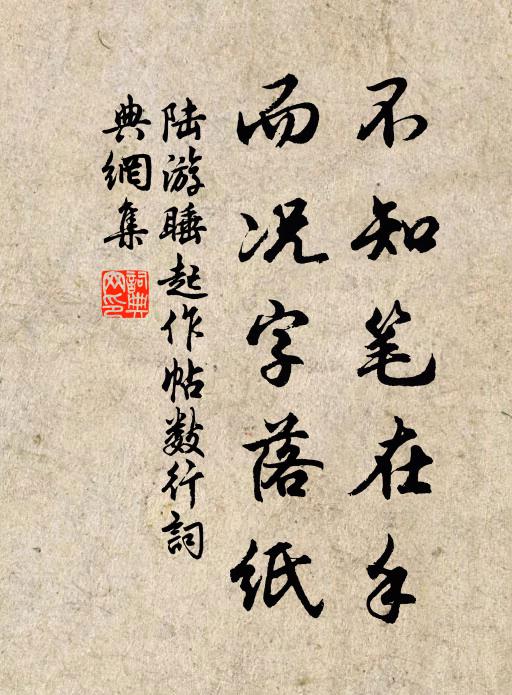 不知笔在手
而况字落纸
陆游睡起作帖数行詞
典網集
詞典网印